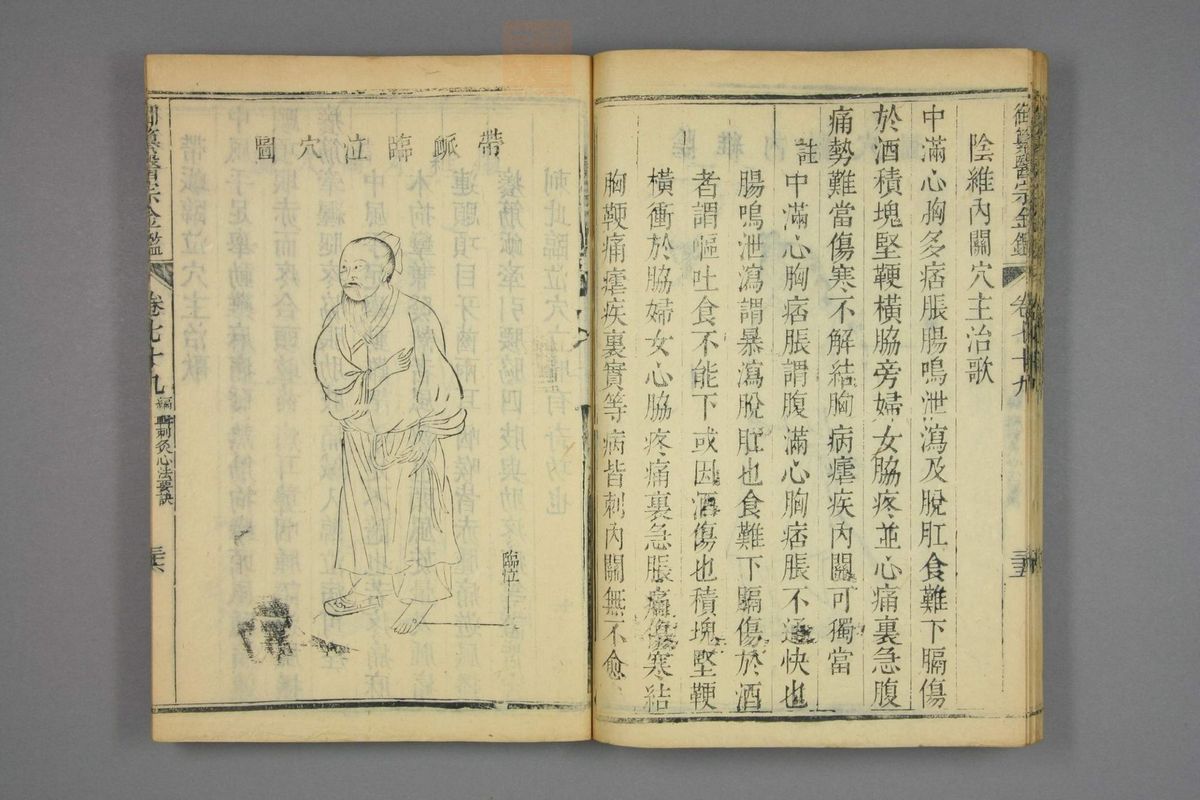 御纂醫宗金鑑
卷七十九
三五
陰維內關穴主治歌
中滿心胸多痞脹腸鳴泄瀉及脫肛食難下膈傷
於酒積塊堅鞕橫脇旁婦女脇疼並心痛裏急腹
痛勢難當傷寒不解結胸病瘧疾內關可獨當
註
中滿心胸痞脹謂腹滿心胸痞脹不通快也
腸鳴泄瀉謂暴瀉脫肛也食難下膈傷於酒
者謂嘔吐食不能下或因酒傷也積塊堅鞕
橫衝於脇婦女心脇疼痛裏急脹痛傷寒結
胸鞕痛瘧疾裏實等病皆刺內關無不愈
帶䘑臨泣穴圖
臨泣
卷七十九
編輯刺灸心法要訣
三六